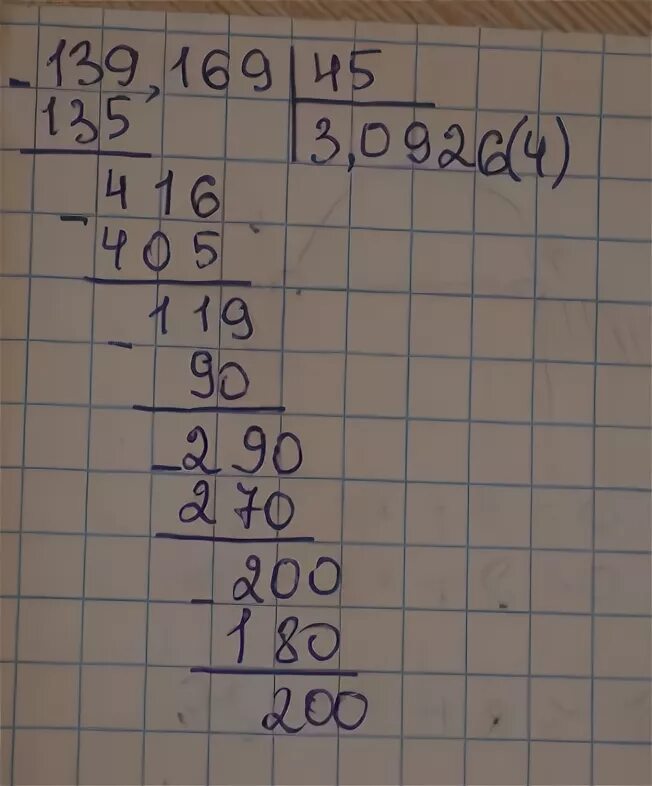 -139,169 | 45
135 | 3,0926(4)
-416
405
-119
90
-290
270
-200
180
200